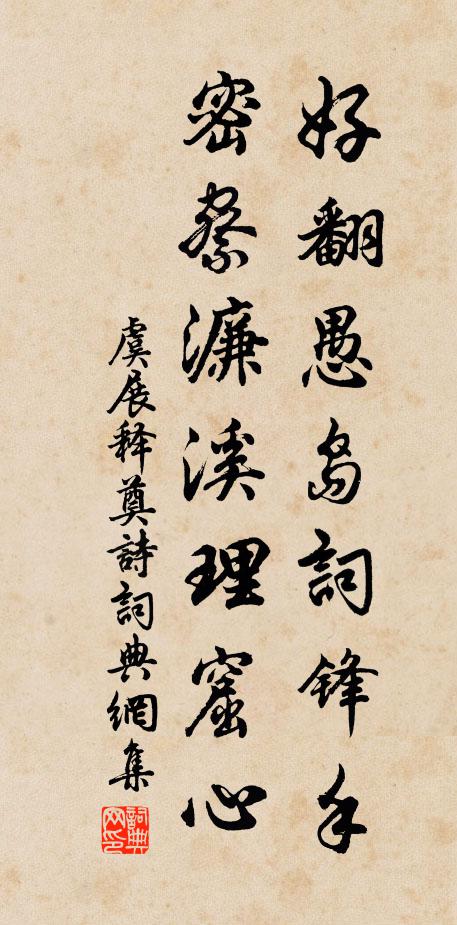 好翻愚島詞鋒手
密察濂溪理窟心
虞展释奠詩詞典網集
詞典網印